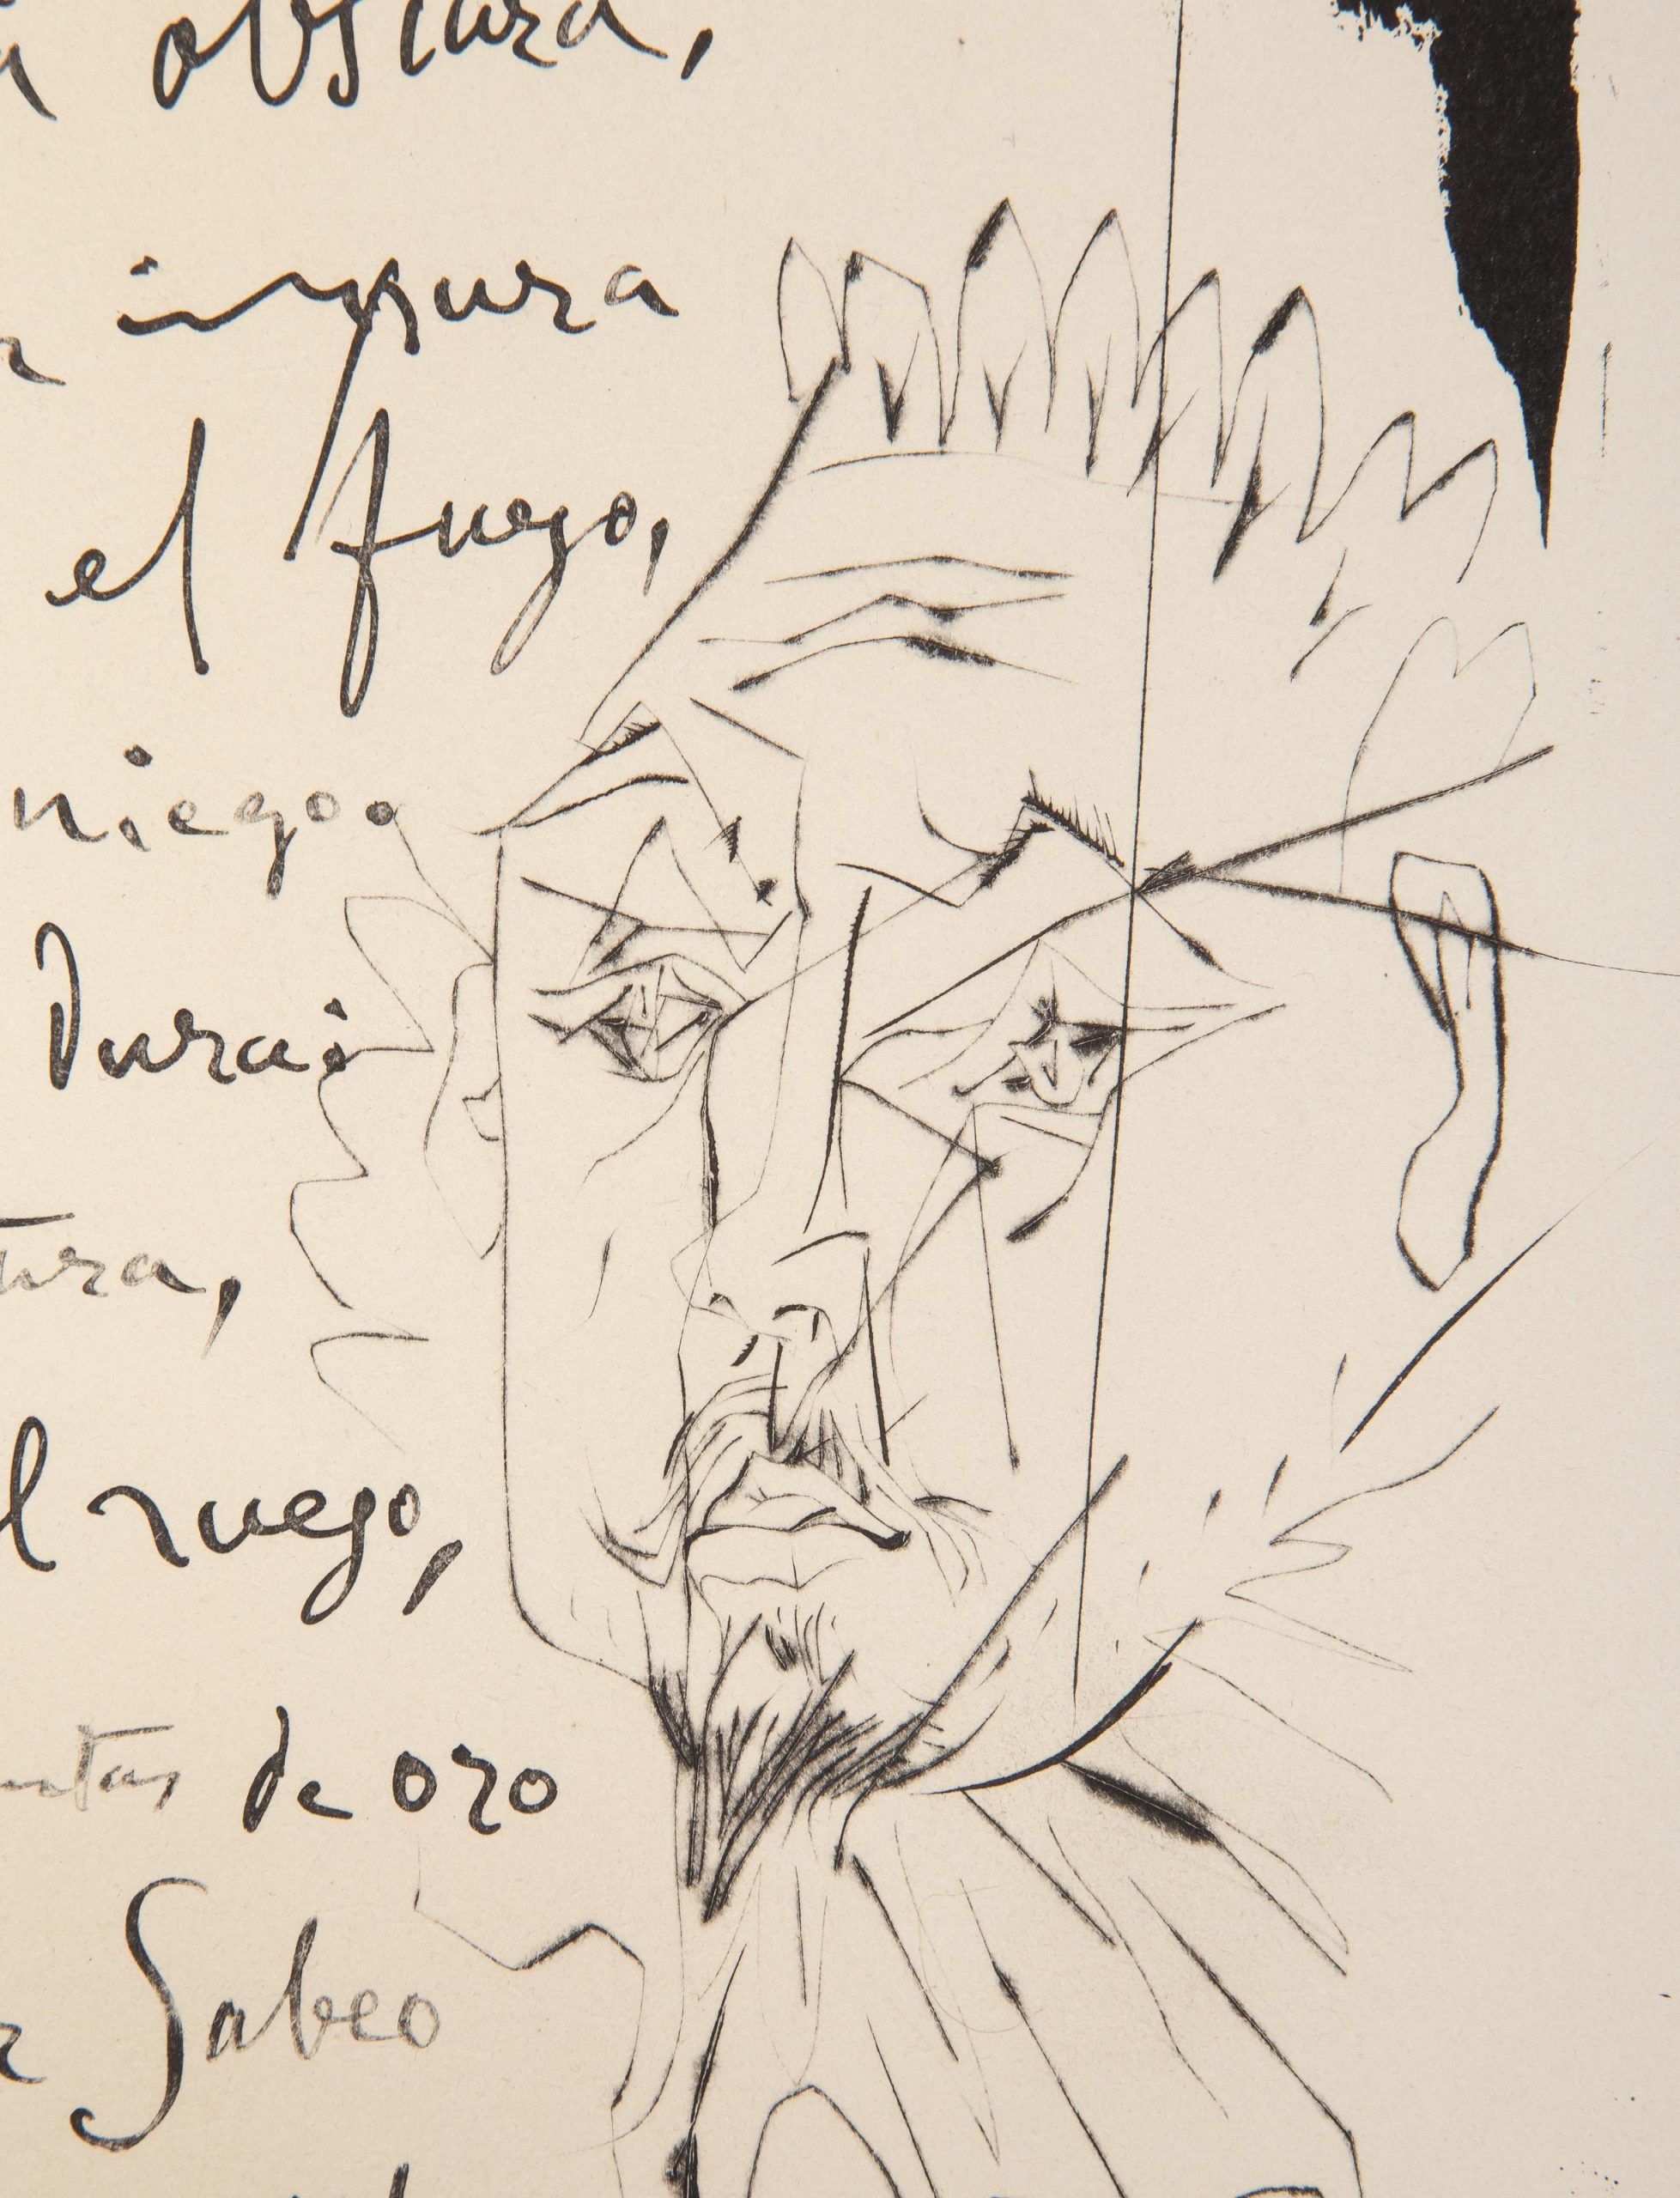 obscura,
impura
el fuego,
niego.
Dura:
tura,
l ruego,
ntas de oro
r Sabeo